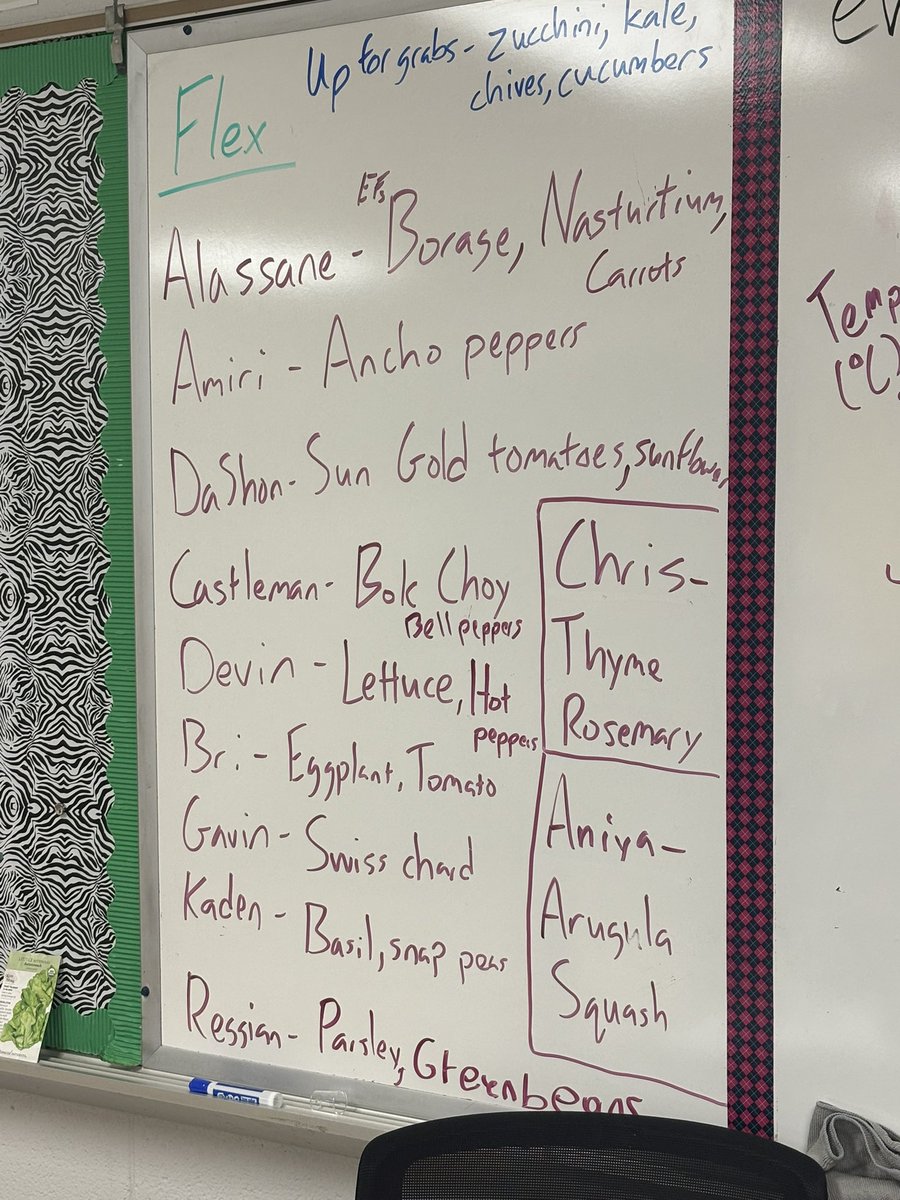 Up for grabs - zucchini, kale,
chives, cucumbers
Flex
EFs
Alassane - Borage, Nasturtium,
Carrots
Amiri - Ancho peppers
DaShon - Sun Gold tomatoes, sunflower
Castleman - Bok Choy
Bell peppers
Devin - Lettuce, Hot
peppers
Bri - Eggplant, Tomato
Gavin - Swiss chard
Kaden - Basil, snap peas
Ressian - Parsley, Greenbeans
Chris -
Thyme
Rosemary
Aniya -
Arugula
Squash
Temp
(°C)